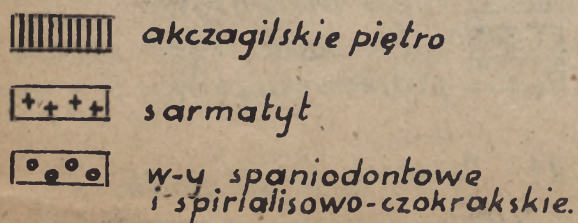 akczagilskie piętro
sarmatyt
w-y spaniodontowe
i spirialisowo-czokrakskie.